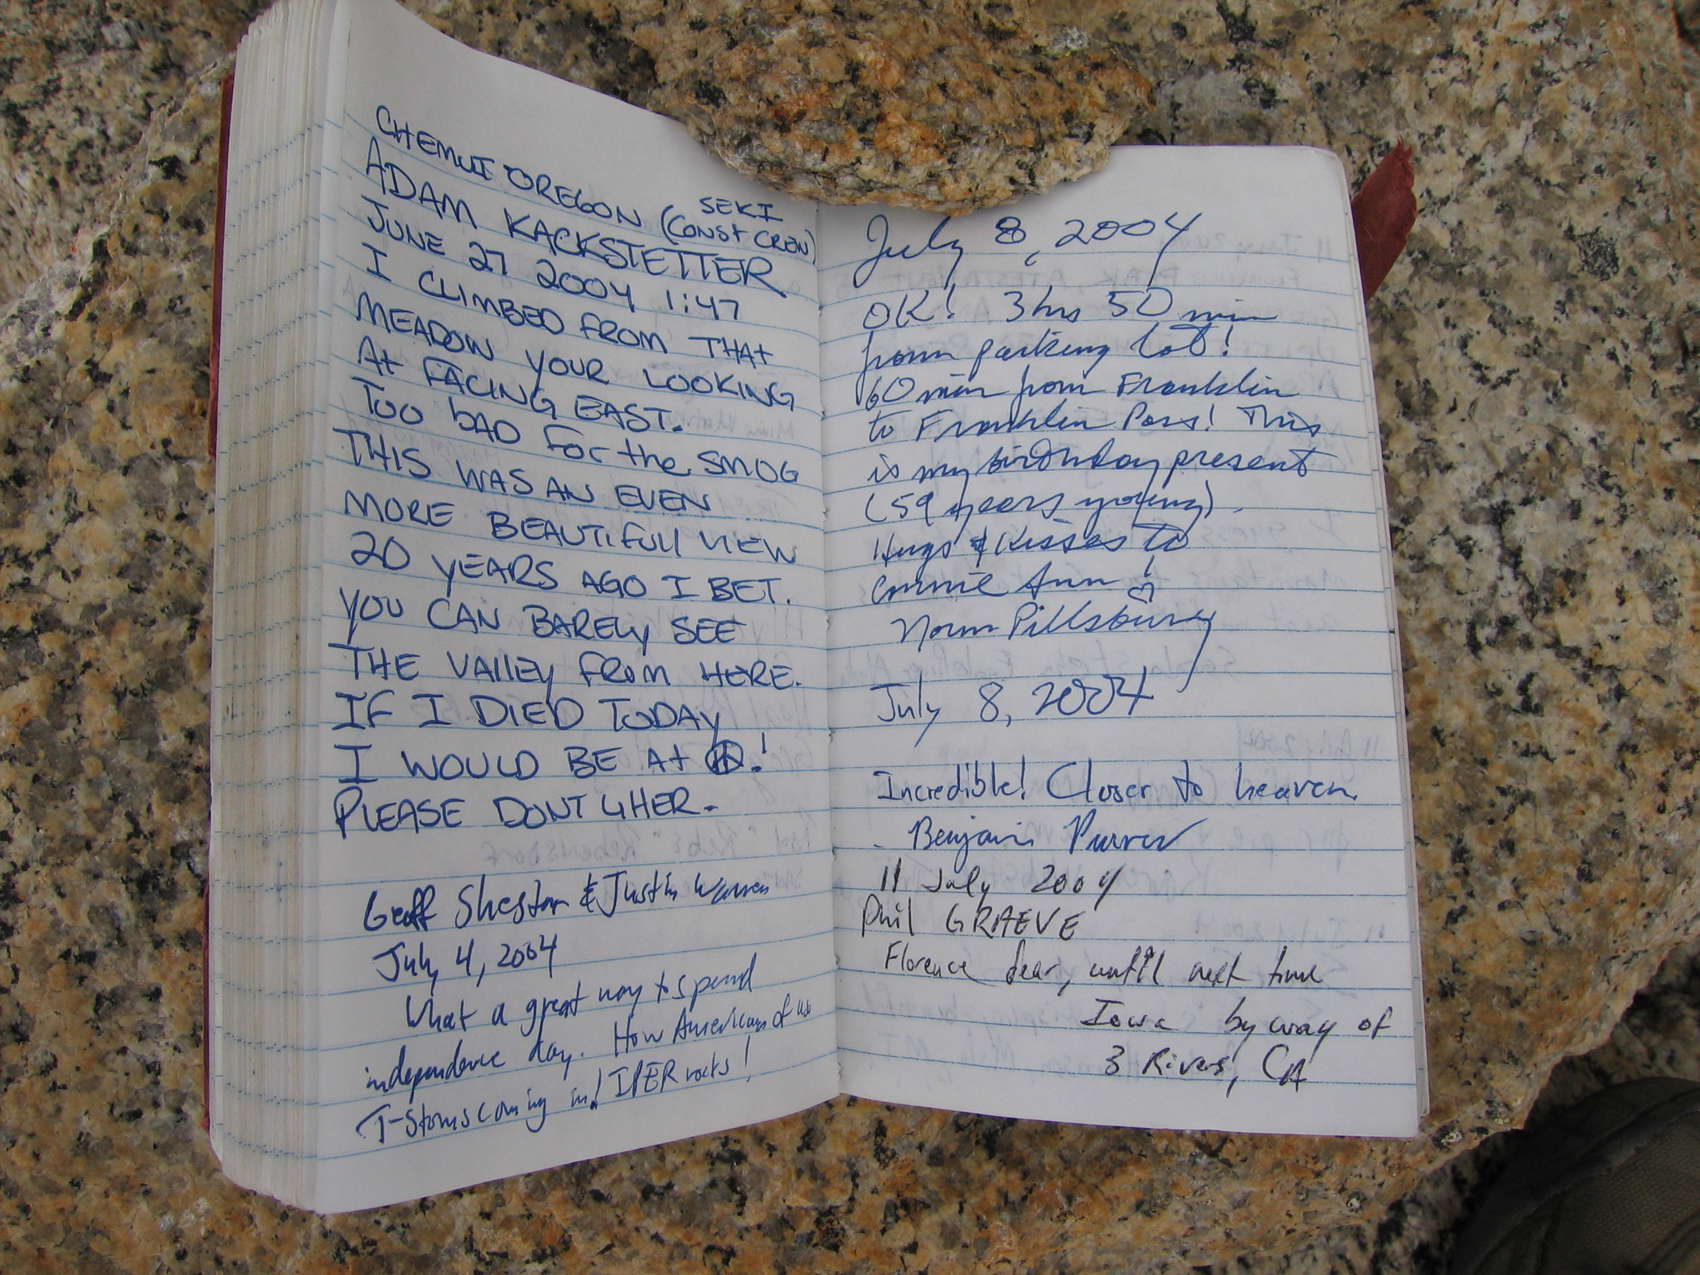 CHEMULT OREGON (CONST CREW)
SEKI
ADAM KACKSTETTER
JUNE 27 2004 1:47
I CLIMBED FROM THAT
MEADOW YOUR LOOKING
At FACING EAST.
Too bAD For the SMOG
THIS WAS AN EVEN
MORE BEAUTIFUll VIEW
20 YEARS AGO I BET.
YOU CAN BARELY SEE
THE VALLEY FROM HERE.
IF I DIED TODAY
I WOULD BE At !
PLEASE DONT LITTER.
Geoff & Justin Warren
July 4, 2004
What a great way to spend
independence day. How American of us
T-Storms coming in! rocks!
July 8, 2004
OK! 3 hrs 50 min
from parking lot!
60 min from Franklin
to Franklin Pass! This
is my birthday present
(59 years young).
Hugs & Kisses to
Connie Ann!
Norm Pillsbury
July 8, 2004
Incredible! Closer to heaven.
Benjamin
11 July 2004
Phil GRAEVE
Florence dear, until next time
Iowa by way of
3 Rivers, CA